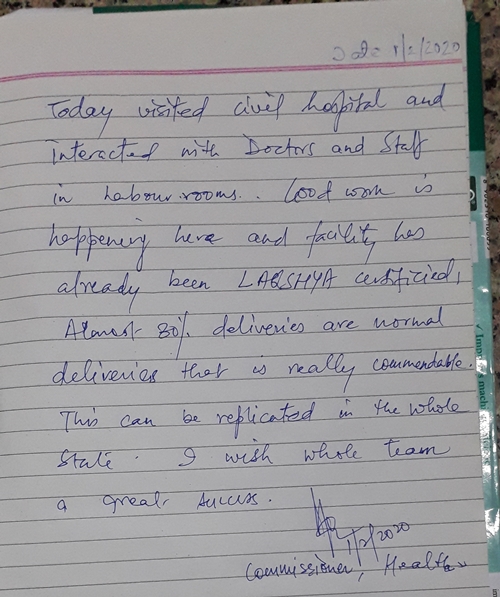 Date 1/2/2020
Today visited civil hospital and
interacted with Doctors and Staff
in labour rooms. Good work is
happening here and facility has
already been LAQSHYA certificied,
Almost 80% deliveries are normal
deliveries that is really commendable.
This can be replicated in the whole
State. I wish whole team
a great success.
1/2/2020
Commissioner, Health